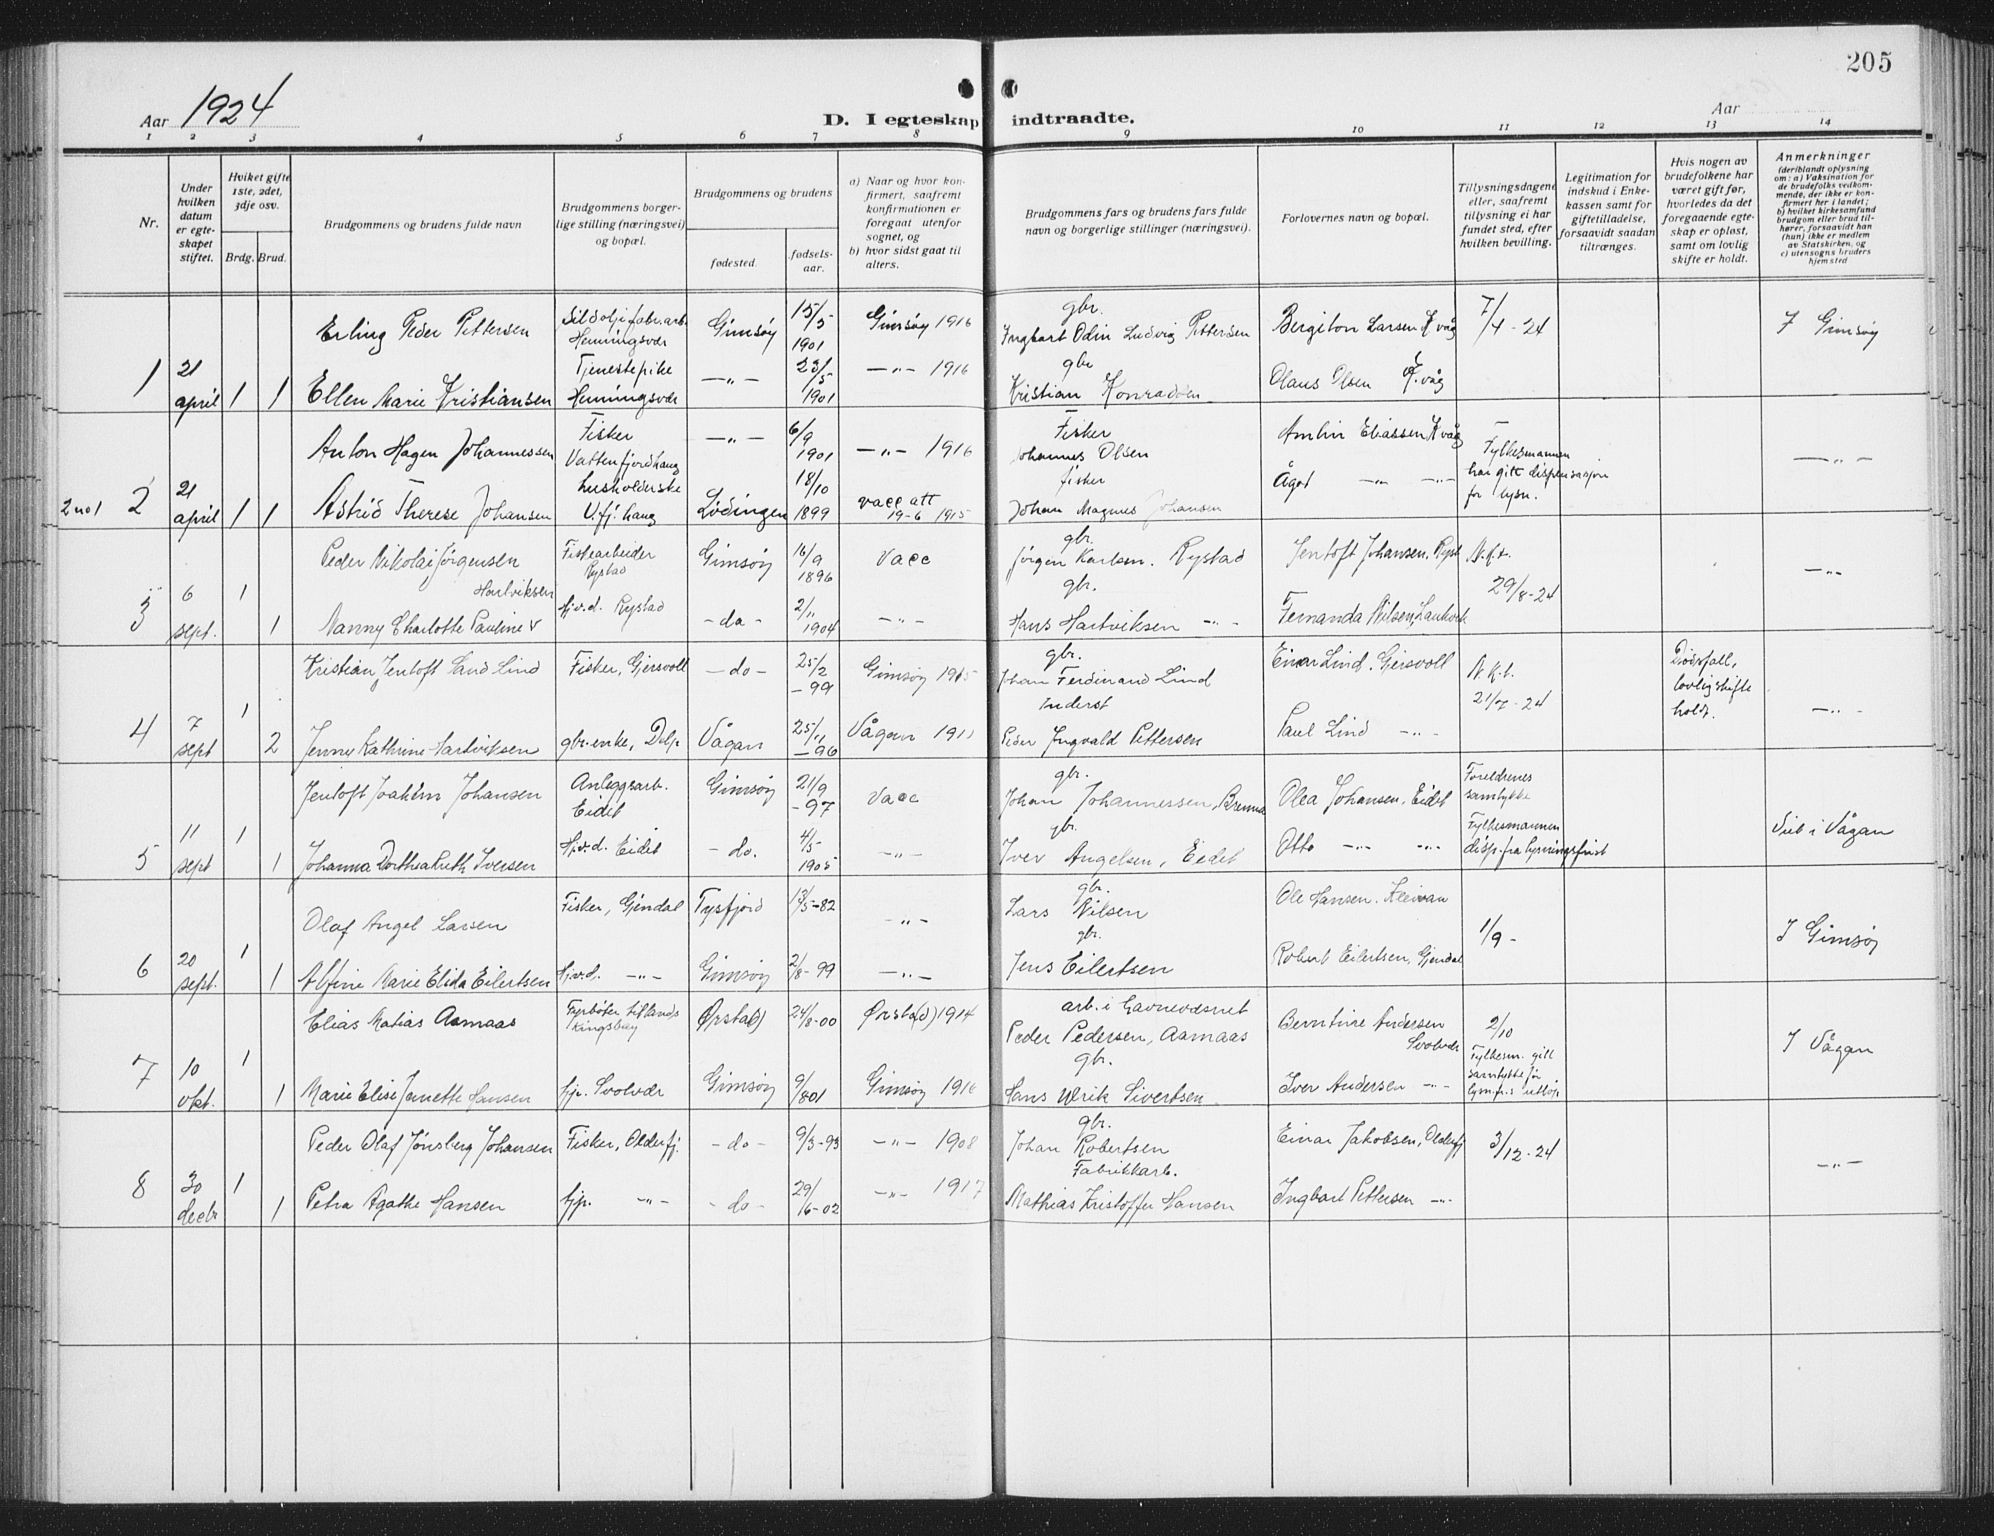 205
Aar 1924
D. I egteskap indtraadte.
Aar
1 2 3 4 5 6 7 8 9 10 11 12 13 14
Nr.
Under
hvilken
datum
er egte-
skapet
stiftet.
Hviket gifte
1ste, 2det,
3dje osv.
Brdg. Brud.
Brudgommens og brudens fulde navn
Brudgommens borger-
lige stilling (næringsvei)
og bopæl.
Brudgommens og brudens
fødested.
fødsels-
aar.
a) Naar og hvor kon-
firmert, saafremt
konfirmationen er
foregaat utenfor
sognet, og
b) hvor sidst gaat til
alters.
Brudgommens fars og brudens fars fulde
navn og borgerlige stillinger (næringsvei).
Forlovernes navn og bopæl.
Tillysningsdagene
eller, saafremt
tillysning ei har
fundet sted, efter
hvilken bevilling.
Legitimation for
indskud i Enke-
kassen samt for
giftetilladelse,
forsaavidt saadan
tiltrænges.
Hvis nogen av
brudefolkene har
været gift før,
hvorledes da det
foregaaende egte-
skap er opløst,
samt om lovlig
skifte er holdt.
Anmerkninger
(deriblandt oplysning
om: a) Vaksination for
de brudefolks vedkom-
mende, der ikke er kon-
firmert her i landet;
b) hvilket kirkesamfund
brudgom eller brud til-
hører, forsaavidt han
(hun) ikke er medlem
av Statskirken, og
c) utensogns bruders
hjemsted
Erling Peder Pettersen Sildoljefabr.arb. Henningsvær Gimsøy 15/5 1901 Gimsøy 1916 gbr. Ingbart Odin Ludvig Pettersen Bergiton Larsen Kvåg 7/4-24 I Gimsøy
1 21 april 1 1 Ellen Marie Kristiansen Tjenestepike Henningsvær —"— 23/5 1901 —"— 1916 gbr Kristian Konradsen Olaus Olsen Kvåg
Anton Hagen Johannessen Fisker Vattenfjordhaug —"— 6/9 1901 —"— 1916 Fisker Johannes Olsen Amlin Eliassen Kvåg Fylkesmannen har gitt dispensasjon for lysn. —"—
2 no 1 2 21 april 1 1 Astrid Therese Johansen husholderske V.fj. haug Lødingen 18/10 1899 vacc att 19-6 1915 fisker Johan Magnus Johansen Ågot —"— —"—
Peder Nikolai Jørgensen Fiskearbeider Rystad Gimsøy 16/9 1896 vacc gbr. Jørgen Karlsen. Rystad Jentoft Johansen, Ryst N.k.t. 29/8-24 —"—
3 6 sept. 1 1 Nanny Charlotte Pauline Hartviksen Hj.v.d. Rystad —do— 2/11 1904 —"— gbr. Hans Hartviksen —"— Fernanda Nilsen, Laukvik
Kristian Jentoft Sand Lind Fisker, Gjersvoll —do— 25/2 —99 Gimsøy 1915 gbr. Johan Ferdinand Lind Einar Lind. Gjersvoll N.k.t. 21/7-24 Dødsfall, lovlig skifte holdt. —"—
4 7 sept 1 2 Jenny Kathrine Hartviksen gbr.enke, Delp Vågan 25/11 —96 Vågan 1911 Inderst Peder Ingvald Pettersen Paul Lind —"—
Jentoft Joakim Johansen Anleggsarb. Eidet Gimsøy 21/9 —97 vacc gbr. Johan Johannessen, Brenna Olea Johansen, Eidet Foreldrenes samtykke
5 11 sept 1 1 Johanna Dorthea Ruth Iversen Hj.v.d. Eidet —do. 4/5 1905 —"— gbr. Iver Angelsen, Eidet Otto —"— —"— Fylkesmannen disp. fra lysningsfrist Viet i Vågan
Olaf Angel Larsen Fisker, Gjendal Tysfjord 13/5-82 —"— gbr. Lars Nilsen Ole Hansen. Kleivan 1/9- I Gimsøy
6 20 sept. 1 1 Alfine Marie Elida Eilertsen Hj.v.d. —"— Gimsøy 2/8-99 —"— gbr. Jens Eilertsen Robert Eilertsen, Gjendal
Elias Matias Aamaas Fyrbøter Kingsbay Ørsta(d) 24/8-00 Ørsta(d) 1914 arb. i havnevæsnet Peder Pedersen, Aamaas Berntine Andersen Svolvær 2/10 I Vågan
7 10 okt. 1 1 Marie Elise Jenette Hansen hjp. Svolvær Gimsøy 9/8 01 Gimsøy 1916 gbr. Hans Ulrik Sivertsen Iver Andersen —"— Fylkesm. gitt samtykke før lysn.fris utløp
Peder Olaf Jønsberg Johansen Fisker, Olderfj. —do— 9/3-93 —"— 1908 gbr. Johan Robertsen Einar Jakobsen, Olderfj 3/12-24 —"—
8 30 decbr 1 1 Petra Agathe Hansen hjp. —"— —do— 29/6-02 —"— 1917 Fabrikkarb. Mathias Kristoffer Hansen Ingbart Pettersen —"—